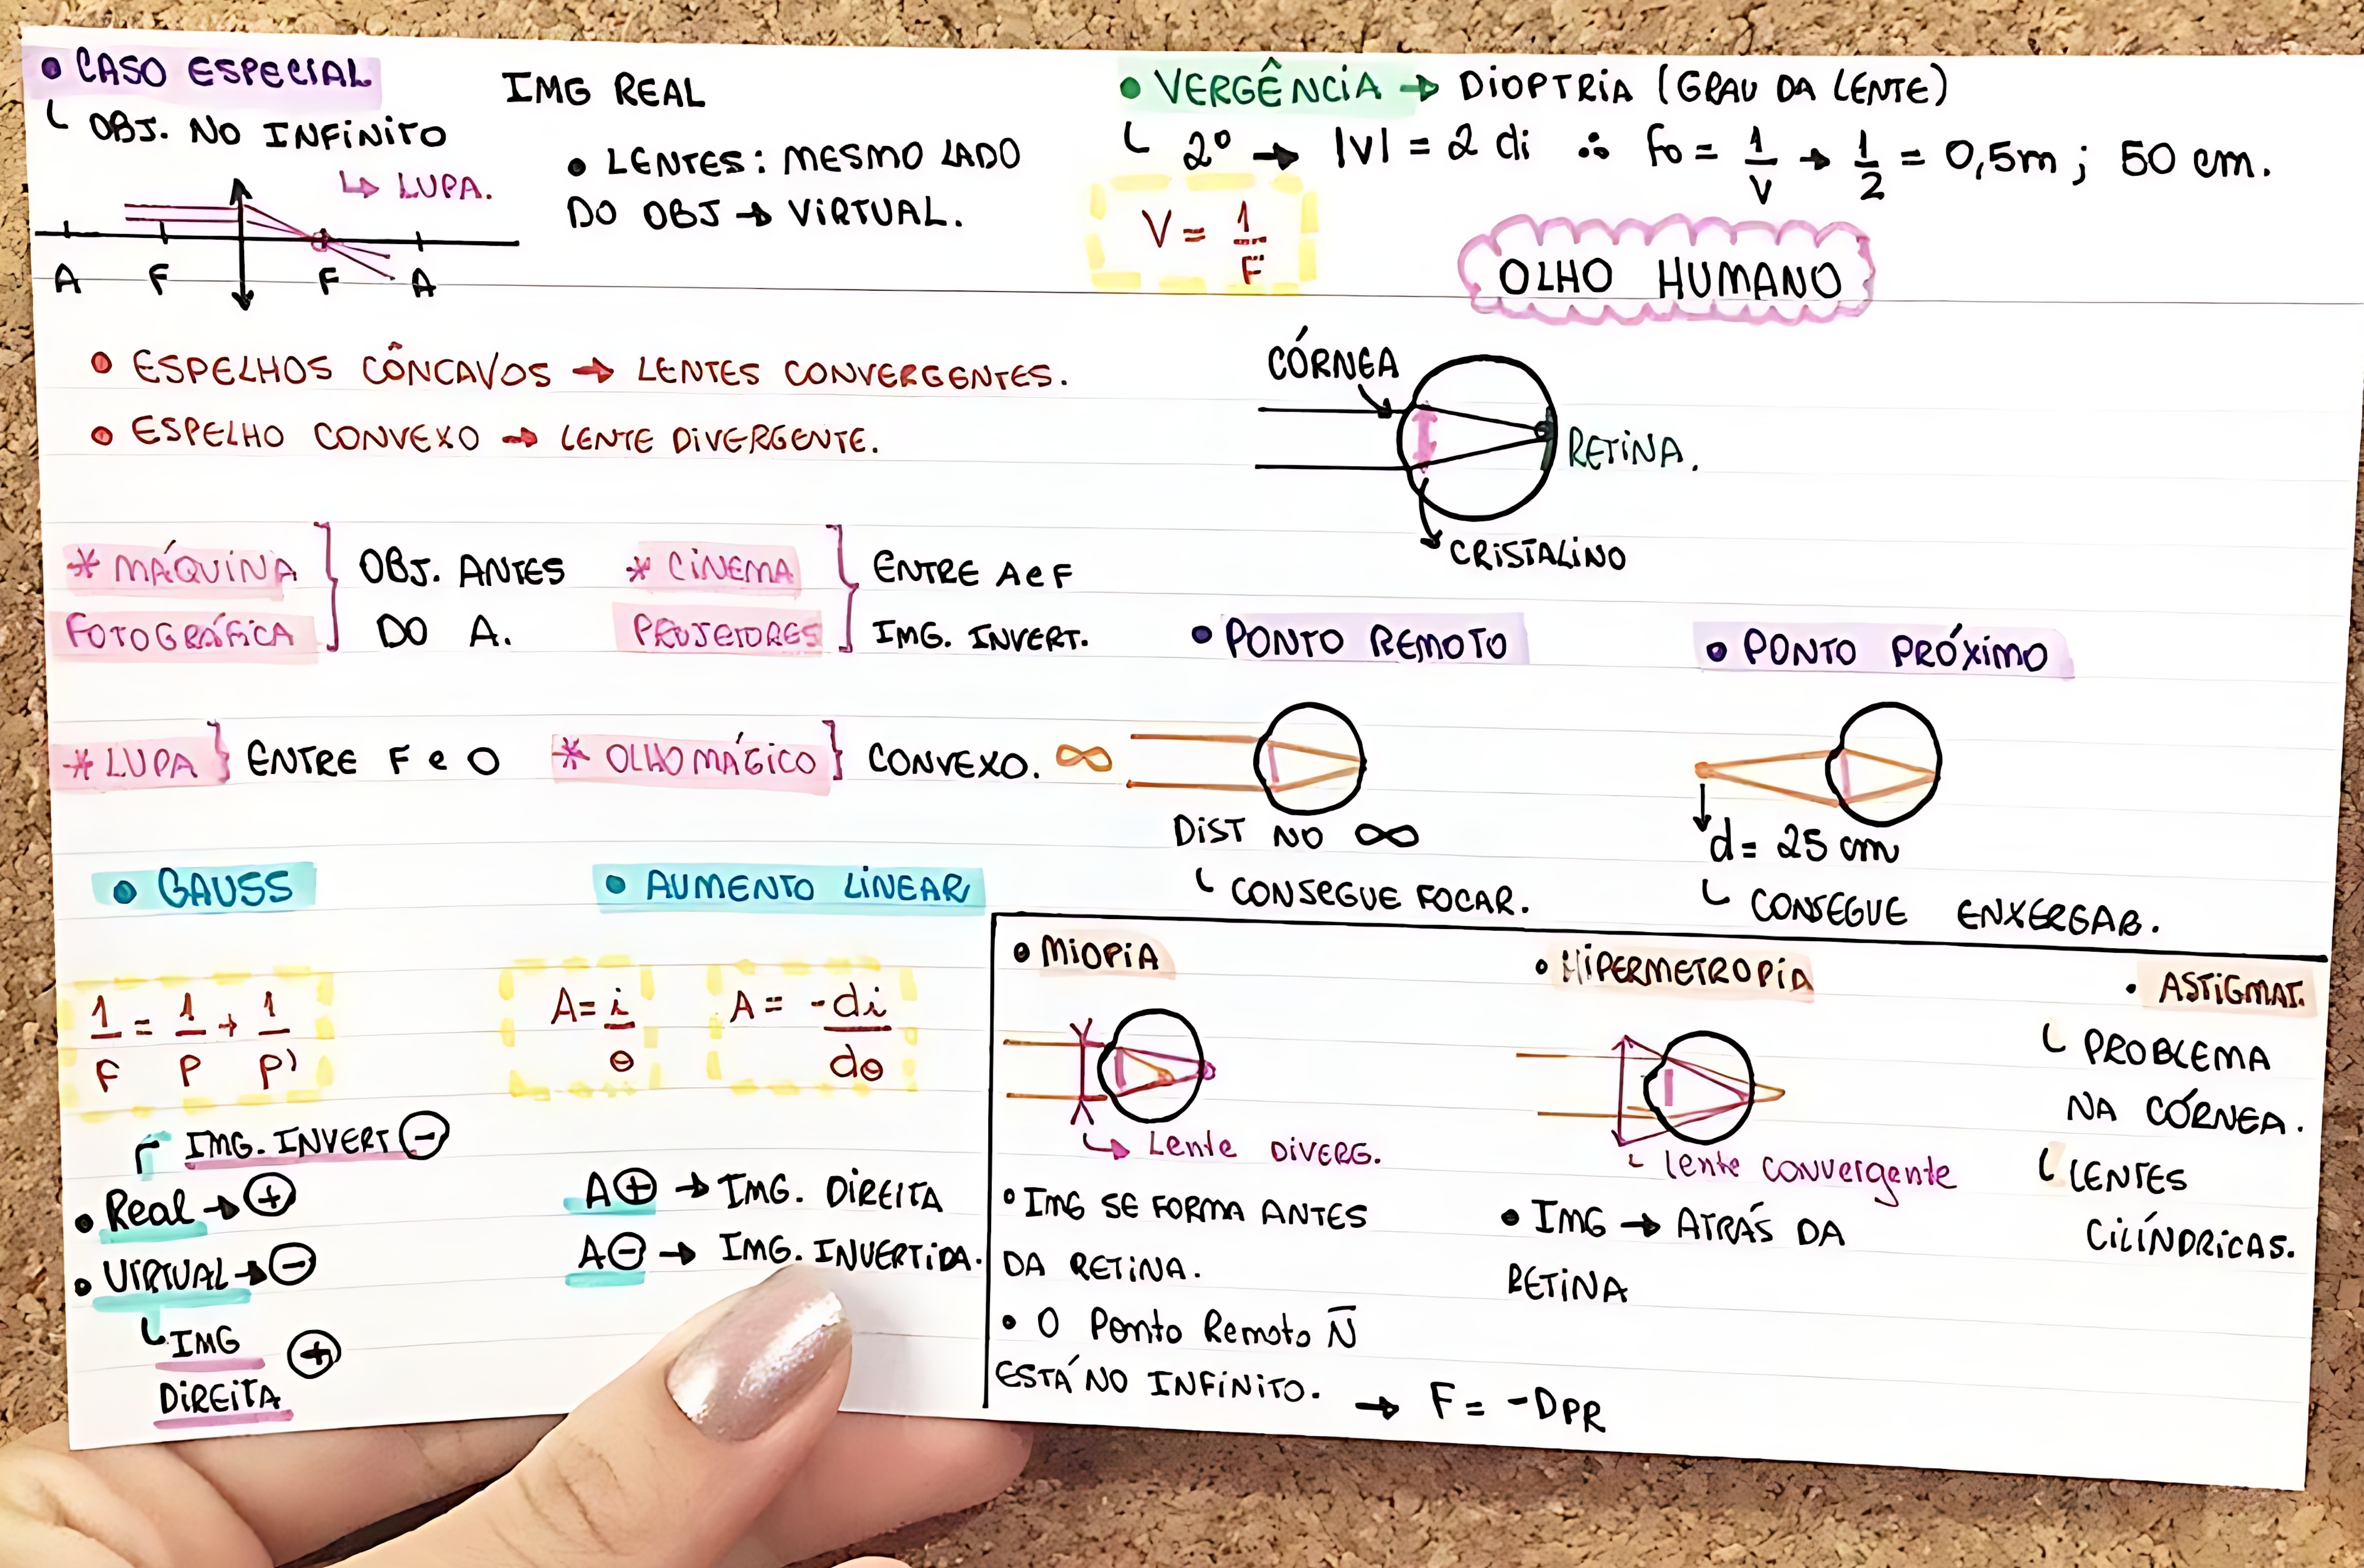 • CASO ESPECIAL
OBJ. NO INFINITO
↳ LUPA.
A F F A
IMG REAL
• LENTES: MESMO LADO
DO OBJ → VIRTUAL.
• VERGÊNCIA → DIOPTRIA (GRAU DA LENTE)
2º → |V| = 2 di ∴ Fo = 1/V → 1/2 = 0,5m ; 50 cm.
V = 1/F
OLHO HUMANO
• ESPELHOS CÔNCAVOS → LENTES CONVERGENTES.
• ESPELHO CONVEXO → LENTE DIVERGENTE.
CÓRNEA
RETINA.
CRISTALINO
* MÁQUINA
FOTOGRÁFICA
OBJ. ANTES
DO A.
* CINEMA
PROJETORES
ENTRE A e F
IMG. INVERT.
* LUPA } ENTRE F e O
* OLHO MÁGICO } CONVEXO.
• PONTO REMOTO
∞
DIST NO ∞
CONSEGUE FOCAR.
• PONTO PRÓXIMO
d = 25 cm
CONSEGUE ENXERGAR.
• GAUSS
1/F = 1/P + 1/P'
IMG. INVERT ⊖
• Real → ⊕
• VIRTUAL → ⊖
IMG ⊕
DIREITA
• AUMENTO LINEAR
A = i/o
A = -di/do
A ⊕ → IMG. DIREITA
A ⊖ → IMG. INVERTIDA.
• MIOPIA
↳ Lente DIVERG.
• IMG SE FORMA ANTES
DA RETINA.
• O Ponto Remoto Ñ
ESTÁ NO INFINITO. → F = -DPR
• HIPERMETROPIA
lente convergente
• IMG → ATRÁS DA
RETINA
• ASTIGMAT.
PROBLEMA
NA CÓRNEA.
LENTES
CILÍNDRICAS.